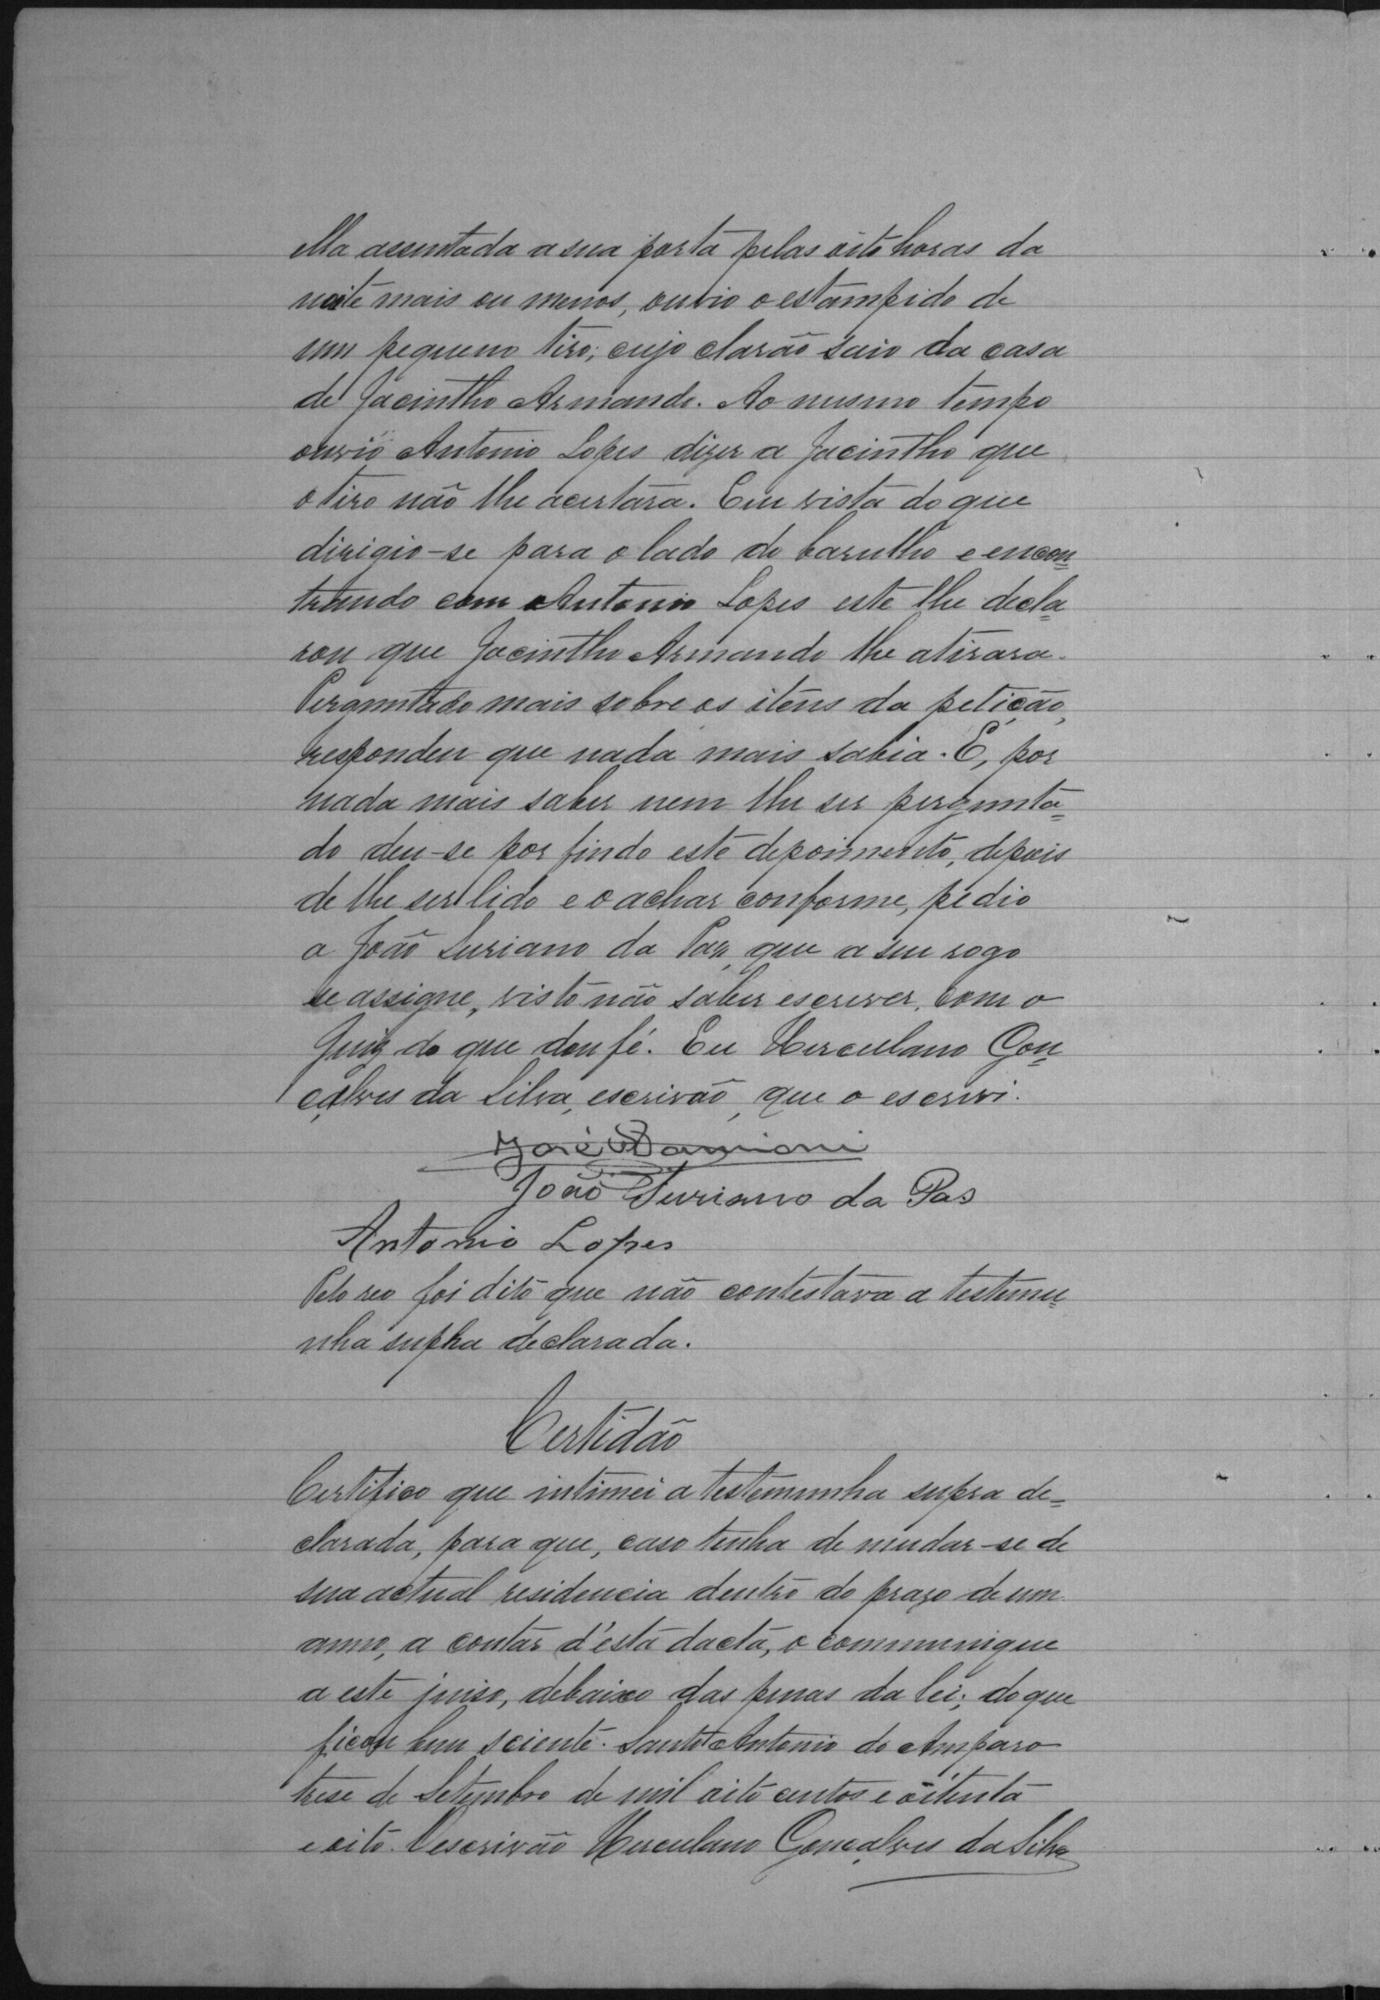 ella assentada a sua porta pelas oito horas da
noite mais ou menos, ouvio o estampido de
um pequeno tiro; cujo clarão saio da casa
de Jacintho Armando. Ao mesmo tempo
ouvio Antonio Lopes dizer a Jacintho que
o tiro não lhe acertára. Em vista do que
dirigio-se para o lado do barulho e encon=
trando com Antonio Lopes este lhe decla=
rou que Jacintho Armando lhe atirara.
Perguntado mais sobre os itens da petição,
respondeu que nada mais sabia. E, por
nada mais saber nem lhe ser pergunta=
do deu-se por findo este depoimento, depois
de lhe ser lido e o achar conforme, pedio
a João Turiano da Paz, que a seu rogo
se assigne, visto não saber escrever, com o
Juiz do que dou fé. Eu Herculano Gon=
çalves da Silva, escrivão, que o escrivi.
José Damiani
João Turiano da Pas
Antonio Lopes
Pelo reo foi dito que não contestava a testemu=
nha supra declarada.
Certidão
Certifico que intimei a testemunha supra de=
clarada, para que, caso tenha de mudar-se de
sua actual residencia dentro do prazo de um
anno, a contar d'esta dacta, o communique
a este juiso, debaixo das penas da lei; do que
ficou bem sciente. Santo Antonio do Amparo
trese de Setembro de mil oito centos e oitenta
e oito. O escrivão Herculano Gonçalves da Silva